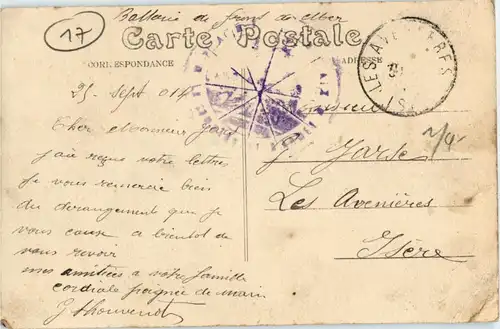 17
Batterie de
Carte Postale
CORRESPONDANCE
ADRESSE
LES AVENIERES
25 Sept 014
Monsieur
Cher Monsieur
j'ai reçus votre lettre
Je vous remercie bien
du derangement que je
vous cause a bientot de
vous revoir
mes amitiées a votre famille
cordiale poignée de main
J Thouvenot
J. Jarse
Les Avenières
Isère